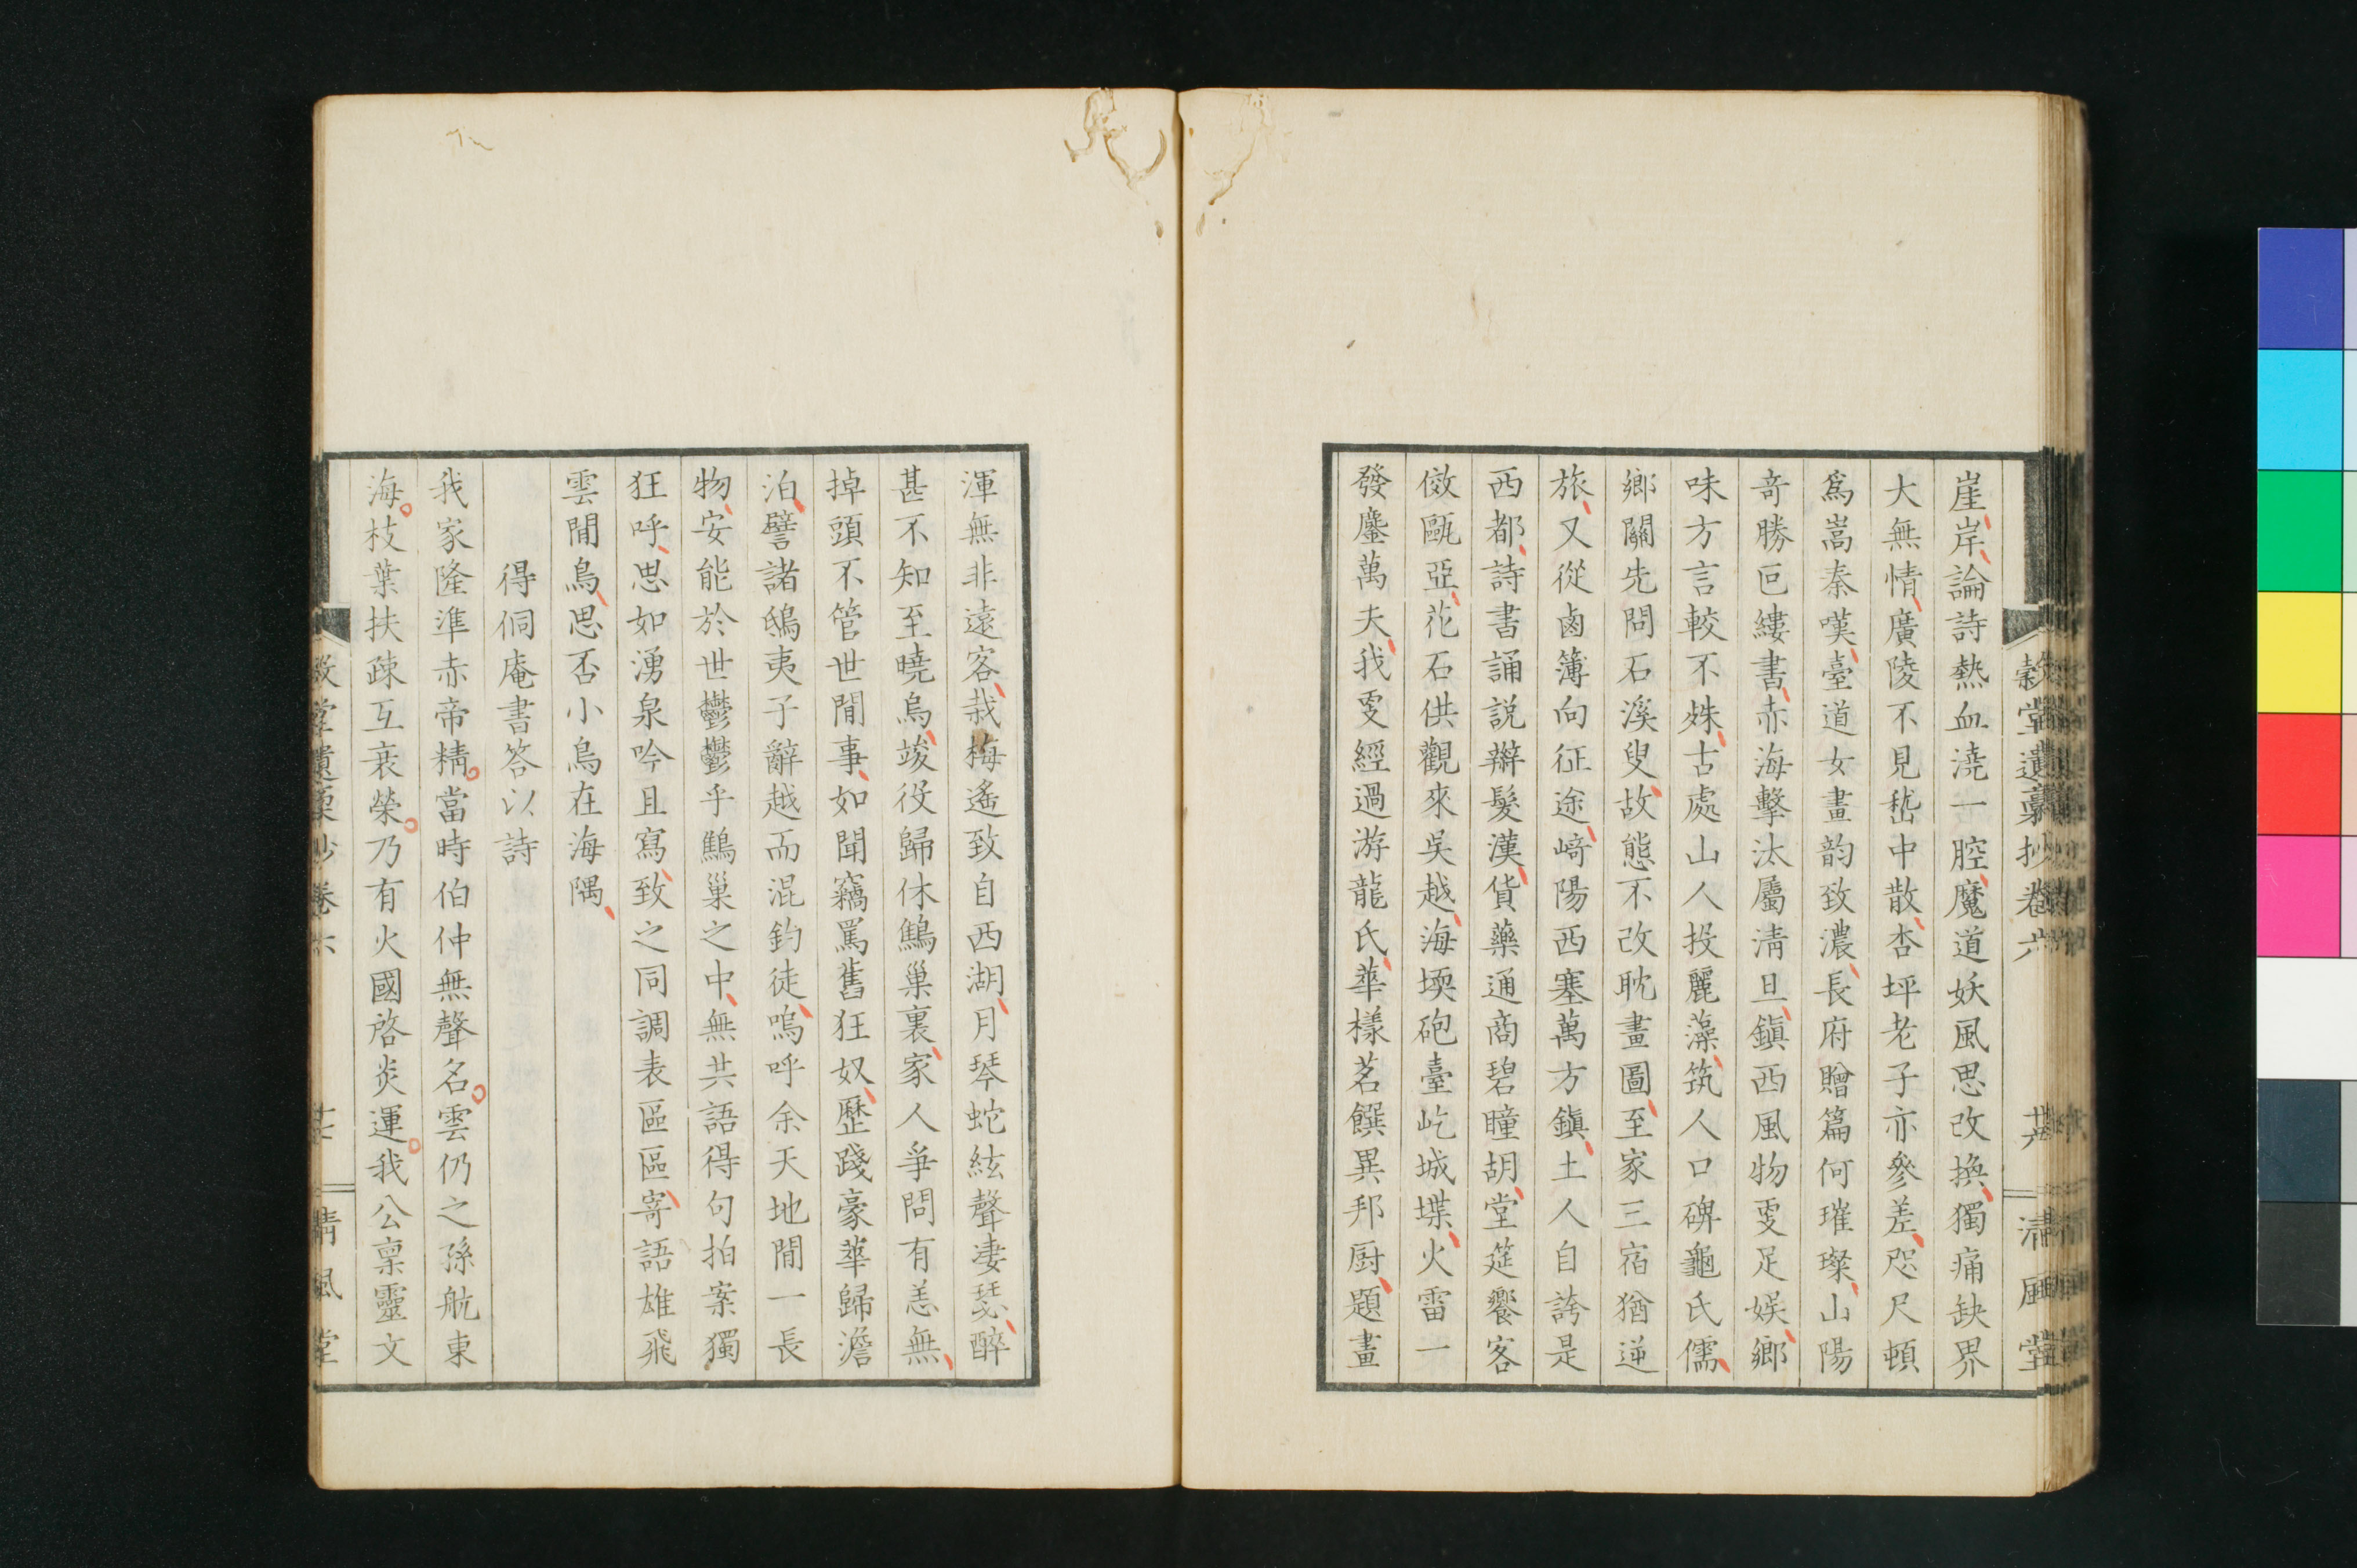 穀堂遺稾抄卷六 廿六 清風堂
崖岸論詩熱血澆一腔魔道妖風思改換獨痛缺界
大無情廣陵不見嵆中散杏坪老子亦參差咫尺頓
爲嵩秦嘆臺道女畫韵致濃長府贈篇何璀璨山陽
奇勝巨縷書赤海擊汰屬清旦鎭西風物更足娱鄉
味方言較不姝古處山人投麗藻筑人口碑龜氏儒
鄉關先問石溪叟故態不改耽畫圖至家三宿猶逆
旅又從鹵簿向征途﨑陽西塞萬方鎭土人自誇是
西都詩書誦説辮髮漢貨藥通商碧瞳胡堂筵饗客
傚甌亞花石供觀來吳越海堧砲臺屹城堞火雷一
發鏖萬夫我更經過游龍氏華樣茗饌異邦厨題畫
渾無非遠客栽梅遙致自西湖月琴蛇絃聲凄瑟醉
甚不知至曉烏竣役歸休鷦巢裏家人爭問有恙無
掉頭不管世間事如聞竊罵舊狂奴歷踐豪華歸澹
泊譬諸鴟夷子辭越而混釣徒嗚呼余天地間一長
物安能於世鬱鬱乎鷦巢之中無共語得句拍案獨
狂呼思如湧泉吟且寫致之同調表區區寄語雄飛
雲間鳥思否小鳥在海隅
得侗庵書答以詩
我家隆準赤帝精當時伯仲無聲名雲仍之孫航東
海枝葉扶疎互衰榮乃有火國啓炎運我公稟靈文
堂遺稾抄卷六 廿七 清風堂